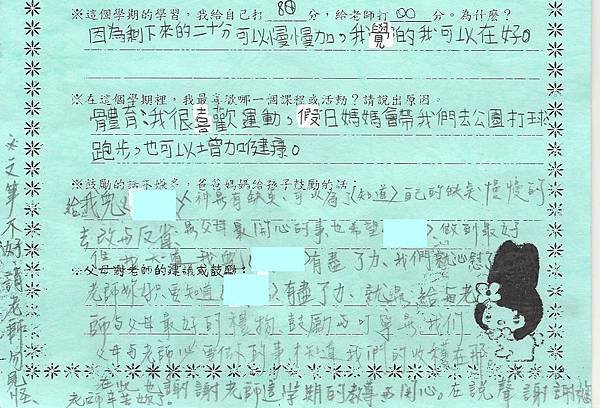 ※這個學期的學習,我給自己打 80 分,給老師打 ○○ 分。為什麼?
因為剩下來的二十分可以慢慢加,我覺的我可以在好。
※在這個學期裡,我最喜歡哪一個課程或活動?請說出原因。
體育:我很喜歡運動,假日媽媽會帶我們去公園打球
跑步,也可以增加健康。
※鼓勵的話不嫌多,爸爸媽媽給孩子鼓勵的話:
給我兒 有缺失、可以 了<知道>自己的缺失 慢慢的
去改 反省 父母最開心的事也希望 做到最好
有盡了力、我們
※父母對老師的建議或鼓勵:
老師妳好 要知道 有盡了力、就是給 老
師与父母最好的禮物 鼓勵 叮嚀是我們
父母与老師 要做的事 知道我們的收穫在那
在此也謝謝老師這學期的教導 開心。在說聲謝謝
老師辛苦妳了。
文筆不好請老師勿見怪